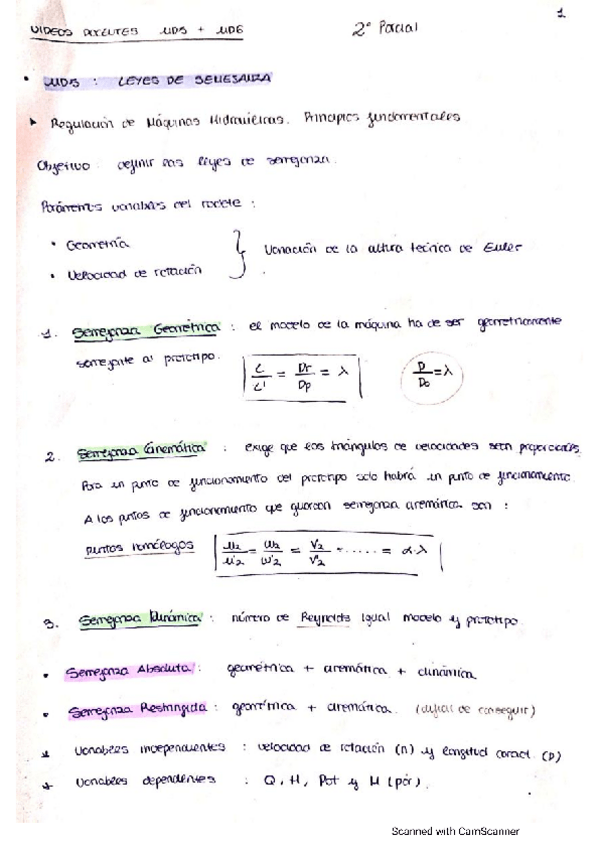 1
VIDEOS POLIMEDIA UD5 + UD6 2º Parcial
• UD5 : LEYES DE SEMEJANZA
Regulación de Máquinas Hidráulicas. Principios fundamentales
Objetivo : definir las leyes de semejanza.
Parámetros variables del rodete :
• Geometría
• Velocidad de rotación
Variación de la altura teórica de Euler
1. Semejanza Geométrica : el modelo de la máquina ha de ser geométricamente
semejante al prototipo. L/L' = Dr/Dp = λ D/D0 = λ
2. Semejanza Cinemática : exige que los triángulos de velocidades sean proporcionales.
Para un punto de funcionamiento del prototipo solo habrá un punto de funcionamiento
A los puntos de funcionamiento que guardan semejanza cinemática son :
puntos homólogos u2/u'2 = w2/w'2 = v2/v'2 = ...... = α·λ
3. Semejanza Dinámica : número de Reynolds igual modelo y prototipo
• Semejanza Absoluta : geométrica + cinemática + dinámica
• Semejanza Restringida : geométrica + cinemática. (difícil de conseguir)
* Variables independientes : velocidad de rotación (n) y longitud caract. (D)
* Variables dependientes : Q, H, Pot y M (par).
Scanned with CamScanner